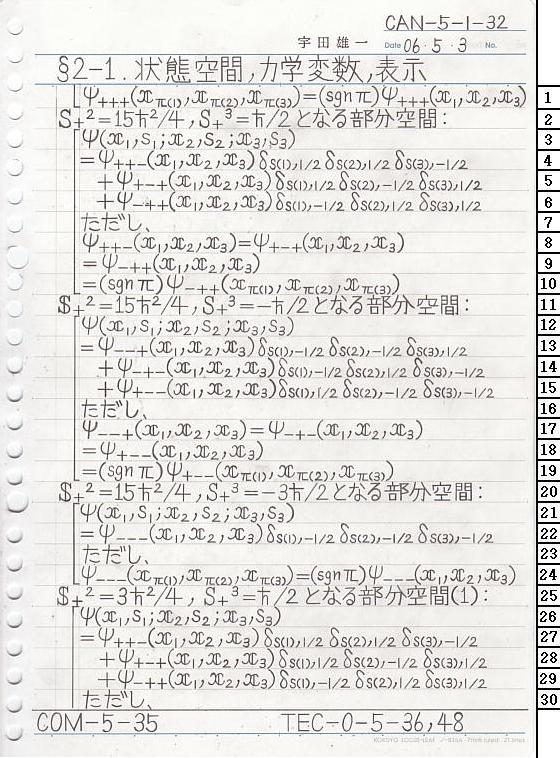 CAN-5-1-32
宇田雄一 Date 06・5・3 No.
§2-1.状態空間,力学変数,表示
[Ψ+++(x_π(1),x_π(2),x_π(3))=(sgn π)Ψ+++(x₁,x₂,x₃) 1
S₊²=15ħ²/4,S₊³=ħ/2となる部分空間: 2
Ψ(x₁,s₁;x₂,s₂;x₃,s₃) 3
=Ψ++-(x₁,x₂,x₃)δs(1),1/2 δs(2),1/2 δs(3),-1/2 4
+Ψ+-+(x₁,x₂,x₃)δs(1),1/2 δs(2),-1/2 δs(3),1/2 5
+Ψ-++(x₁,x₂,x₃)δs(1),-1/2 δs(2),1/2 δs(3),1/2 6
ただし、 7
Ψ++-(x₁,x₂,x₃)=Ψ+-+(x₁,x₂,x₃) 8
=Ψ-++(x₁,x₂,x₃) 9
=(sgn π)Ψ-++(x_π(1),x_π(2),x_π(3)) 10
S₊²=15ħ²/4,S₊³=-ħ/2となる部分空間: 11
Ψ(x₁,s₁;x₂,s₂;x₃,s₃) 12
=Ψ--+(x₁,x₂,x₃)δs(1),-1/2 δs(2),-1/2 δs(3),1/2 13
+Ψ-+-(x₁,x₂,x₃)δs(1),-1/2 δs(2),1/2 δs(3),-1/2 14
+Ψ+--(x₁,x₂,x₃)δs(1),1/2 δs(2),-1/2 δs(3),-1/2 15
ただし、 16
Ψ--+(x₁,x₂,x₃)=Ψ-+-(x₁,x₂,x₃) 17
=Ψ+--(x₁,x₂,x₃) 18
=(sgn π)Ψ+--(x_π(1),x_π(2),x_π(3)) 19
S₊²=15ħ²/4,S₊³=-3ħ/2となる部分空間: 20
Ψ(x₁,s₁;x₂,s₂;x₃,s₃) 21
=Ψ---(x₁,x₂,x₃)δs(1),-1/2 δs(2),-1/2 δs(3),-1/2 22
ただし、 23
Ψ---(x_π(1),x_π(2),x_π(3))=(sgn π)Ψ---(x₁,x₂,x₃) 24
S₊²=3ħ²/4,S₊³=ħ/2となる部分空間(1): 25
Ψ(x₁,s₁;x₂,s₂;x₃,s₃) 26
=Ψ++-(x₁,x₂,x₃)δs(1),1/2 δs(2),1/2 δs(3),-1/2 27
+Ψ+-+(x₁,x₂,x₃)δs(1),1/2 δs(2),-1/2 δs(3),1/2 28
+Ψ-++(x₁,x₂,x₃)δs(1),-1/2 δs(2),1/2 δs(3),1/2 29
ただし、 30
COM-5-35 TEC-0-5-36,48
KOKUYO LOOSE-LEAF ノ-836A 7mm ruled